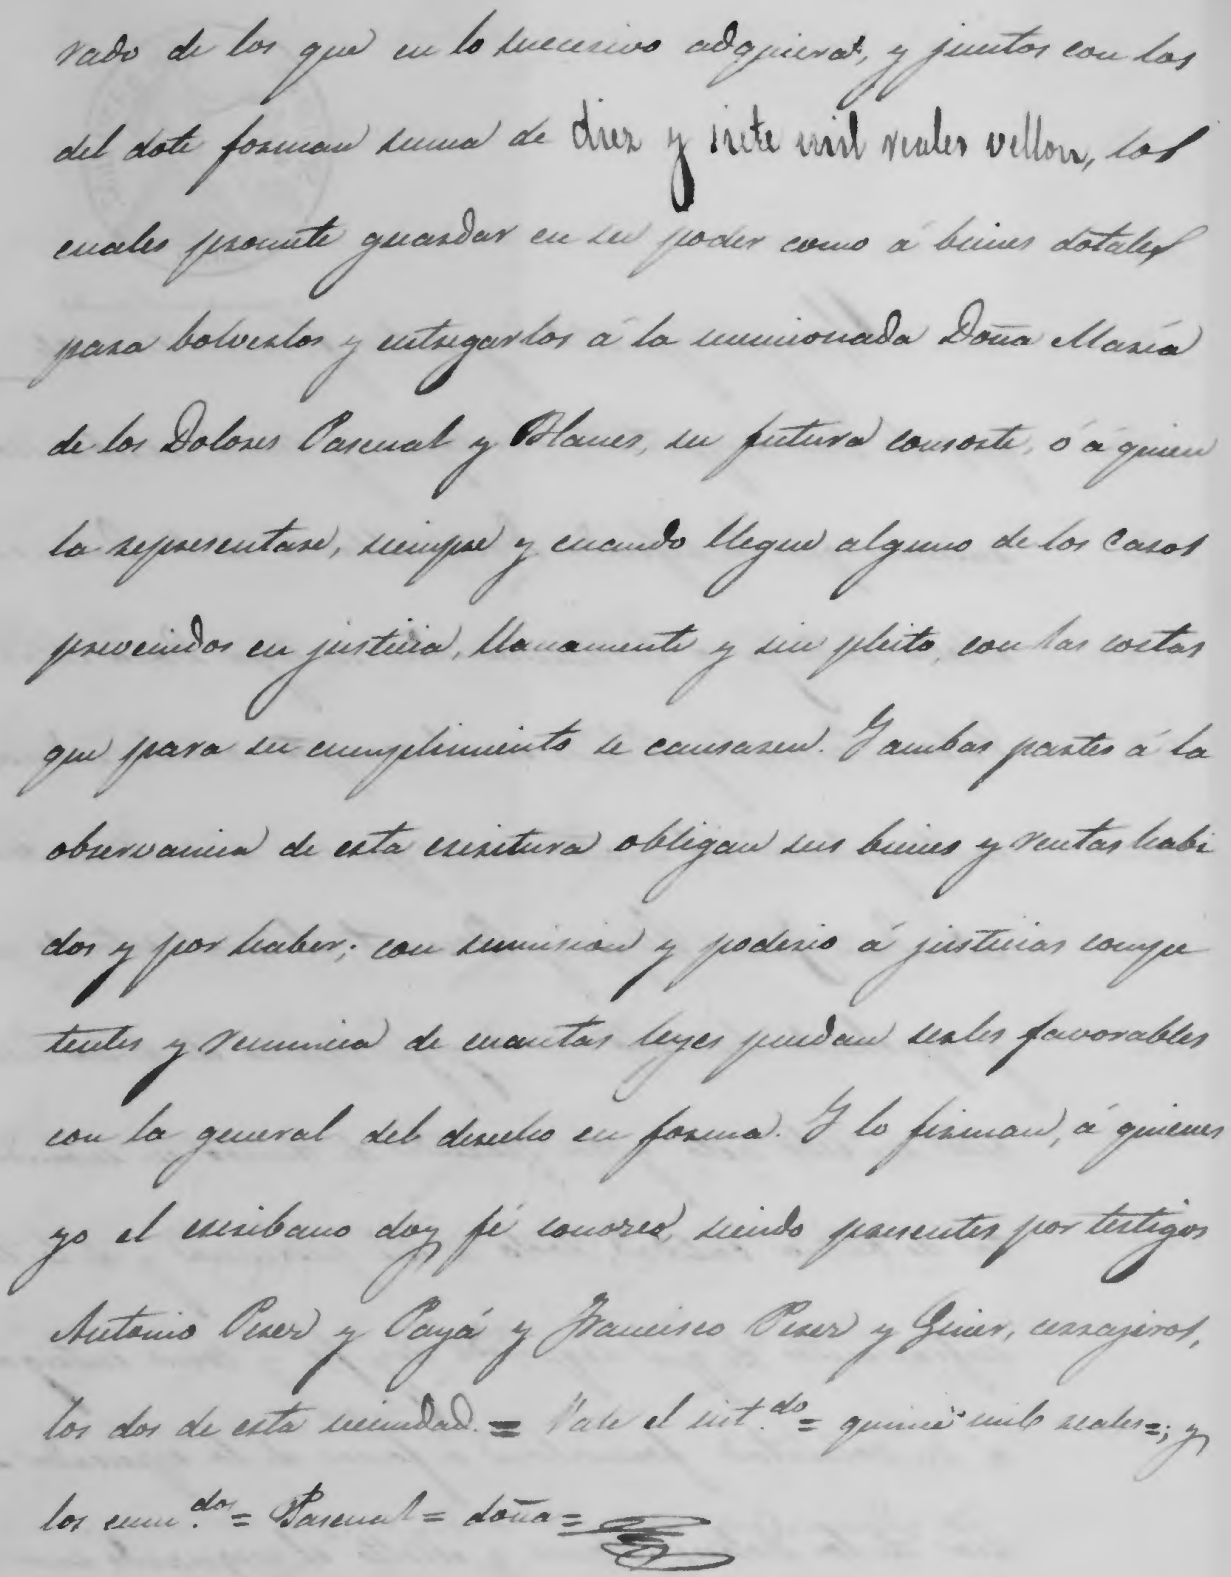 rado de los que en lo succesivo adquiera, y juntos con los
del dote forman suma de diez y siete mil reales vellon, los
cuales promete guardar en su poder como á bienes dotales
para bolverlos y entregarlos á la mencionada Doña María
de los Dolores Pascual y Blanes, su futura consorte, ó á quien
la representare, siempre y cuando llegue alguno de los casos
prevenidos en justicia, llanamente y sin pleito, con las costas
que para su cumplimiento se causaren. Y ambas partes á la
observancia de esta escritura obligan sus bienes y rentas habi
dos y por haber; con sumision y poderio á justicias compe
tentes y renuncia de cuantas leyes puedan serles favorables
con la general del derecho en forma. Y lo firman, á quienes
yo el escribano doy fé conozco, siendo presentes por testigos
Antonio Perez y Payá y Francisco Perez y Giner, cerrajeros,
los dos de esta vecindad. = Vale el int.do = quince mil reales =; y
los enm.dos = Pascual = doña =